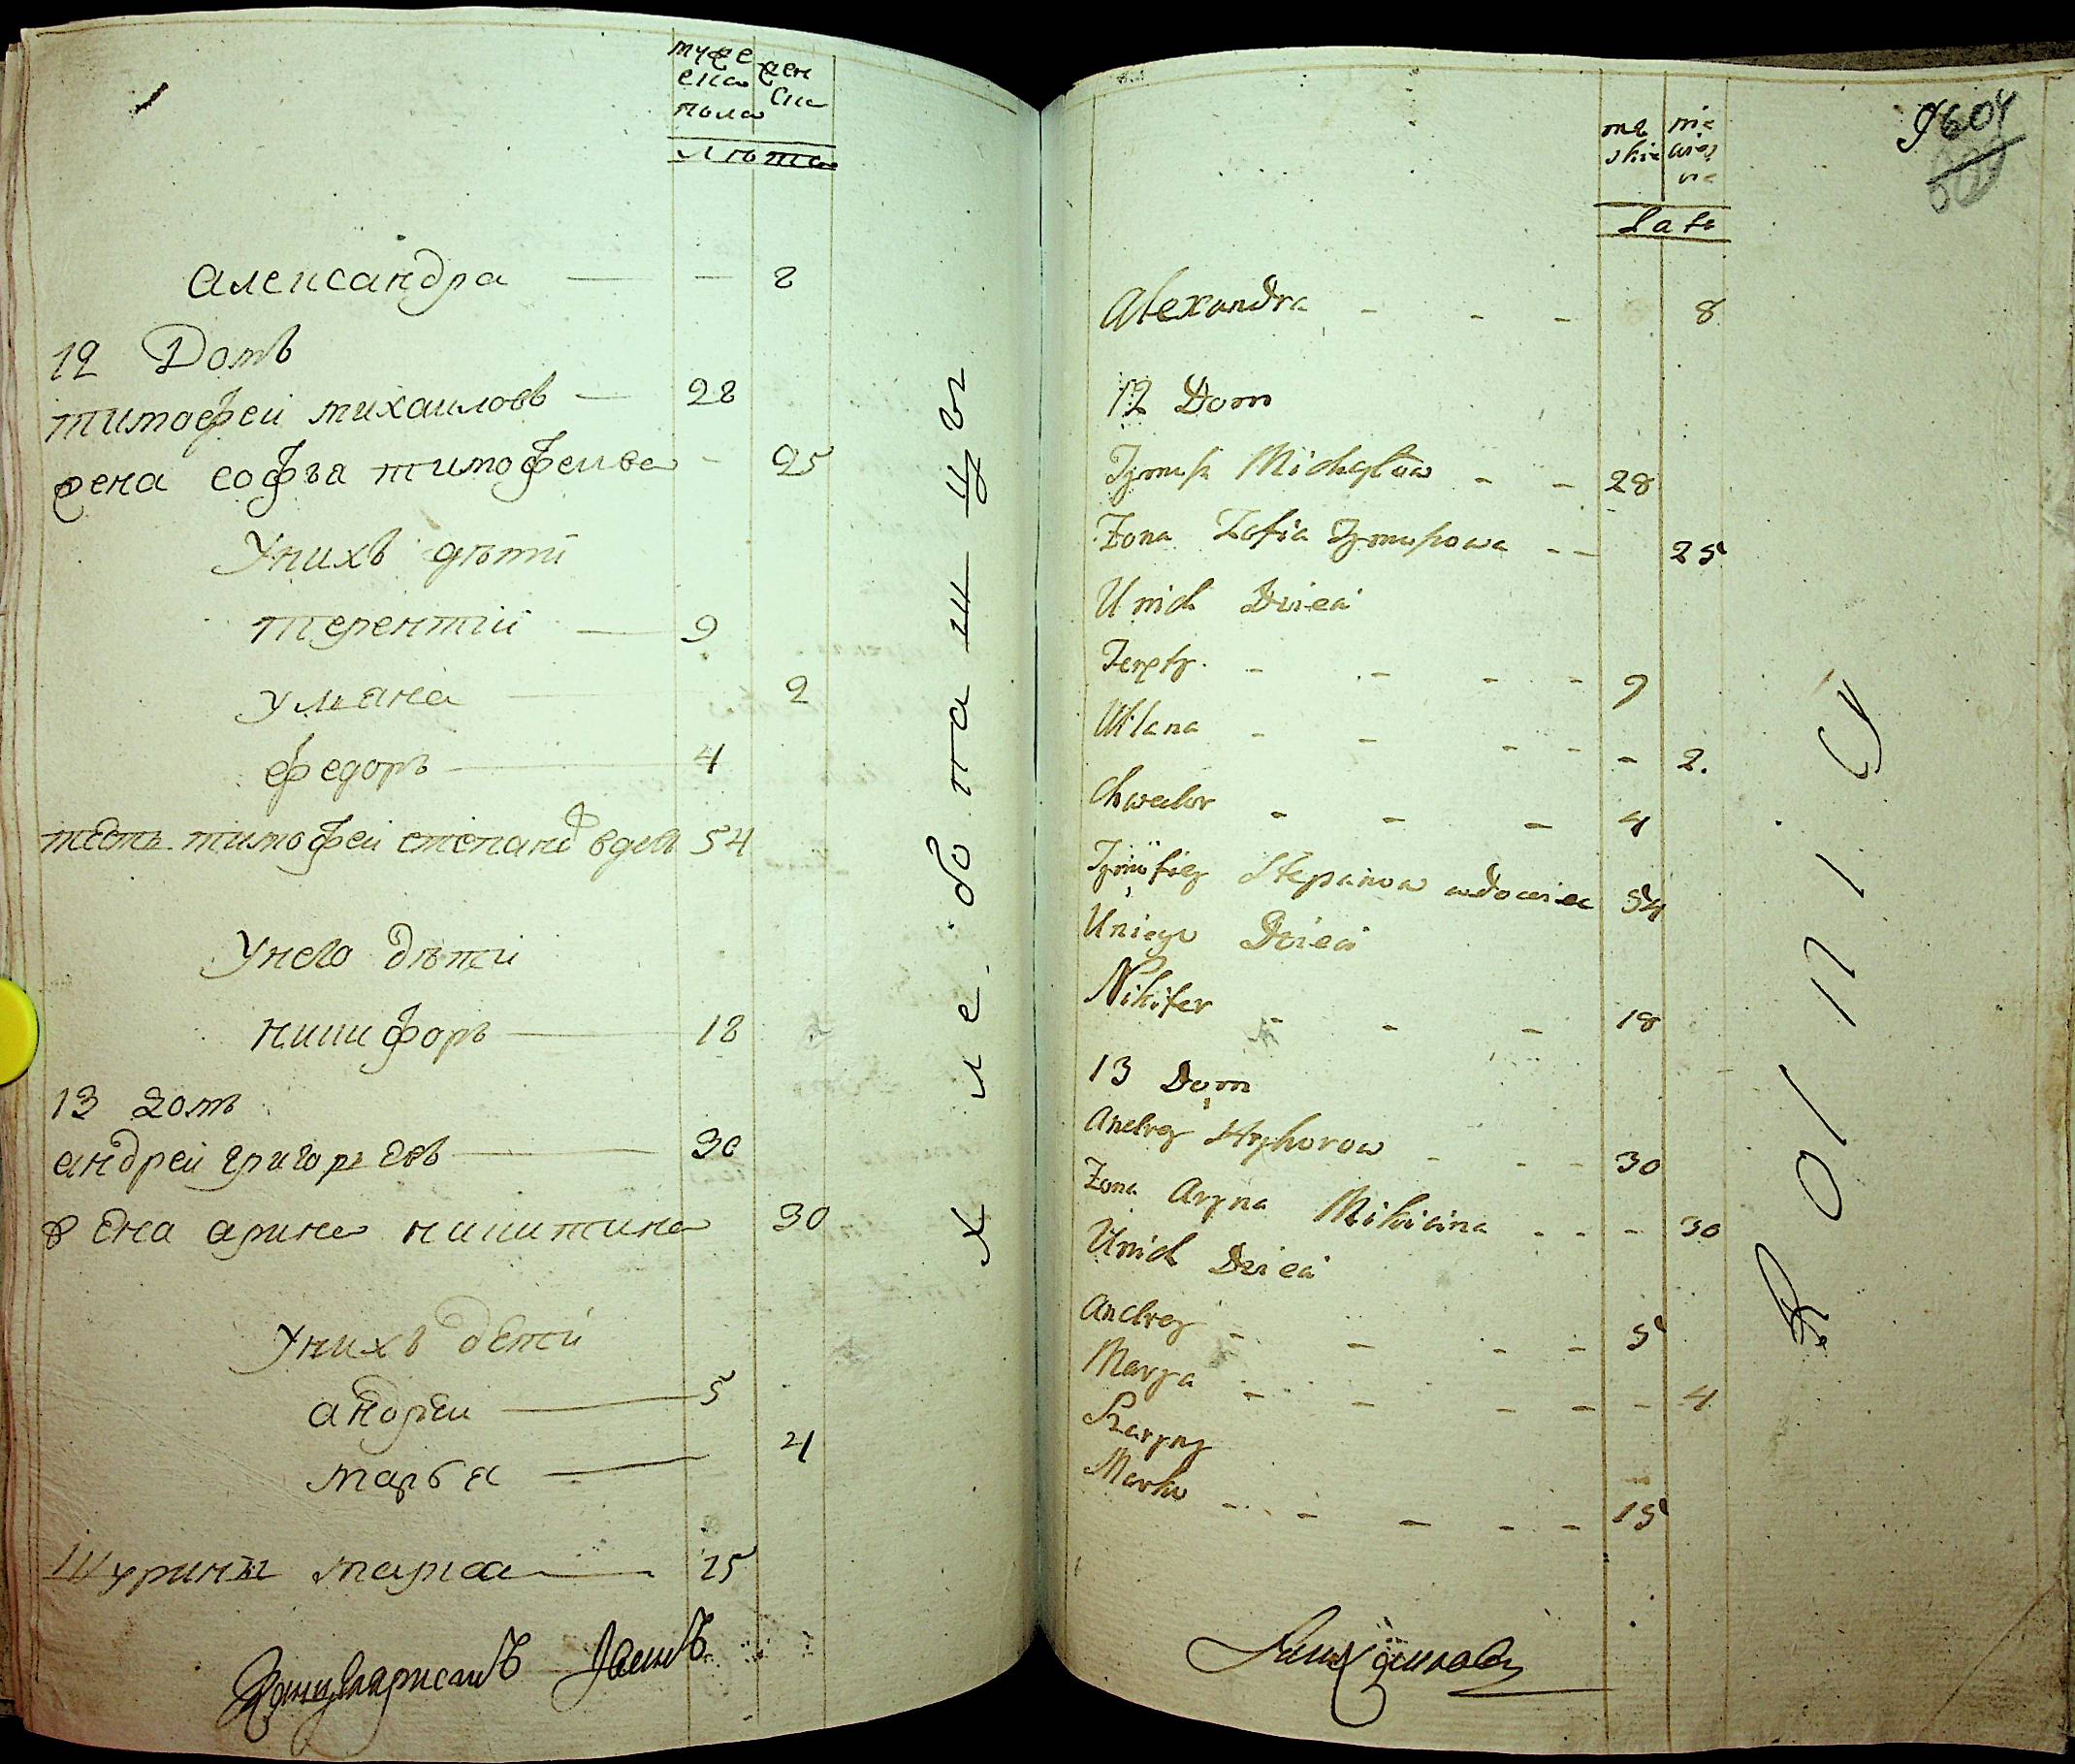 мужеска пола женска
лѣта
александра — — 8
12 Домъ
тимофей михаиловъ — 28
жена софья тимофеива - 25
Унихъ дѣти
терентій — 9
улиана — 2
федоръ — 4
тесть тимофей степановъ вдов 54
Унего дѣти
никифоръ — 18
13 домъ
андрей григорьевъ — 30
жена арина никитина 30
Унихъ дети
андреи — 5
марья — 4
Шуринъ марко — 15
хлебопашцы
mę skie nie wieś nie
Lata
Alexandra - - - 8
12 Dom
Tymofi Michayłow - - 28
Żona Zofia Tymofiowa - - 25
Unich Dzieci
Terenty - - - - 9
Ulana - - - - - 2.
Chwedor - - - 4
Tymofiey Stepanow wdowiec 54
Uniego Dzieci
Nikifer - - - 18
13 Dom
Andrey Hryhorow - - - 30
Żona Aryna Mikicina - - - 30
Unich Dzieci
Andrey - - - - 5
Marya - - - - - 4
Szaryny
Marko - - - - - 15
Rolnicy